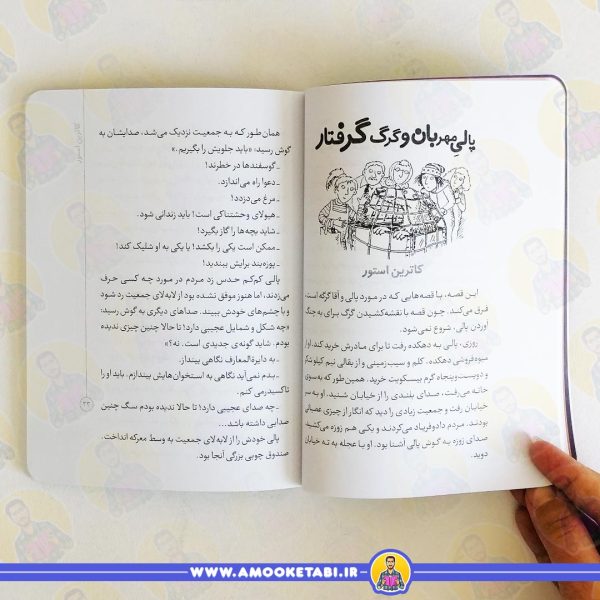 پالیِ مهربان و گرگ گرفتار
کاترین استور
این قصه، با قصه‌هایی که در مورد پالی و آقا گرگه است،
فرق می‌کند. چون قصه با نقشه‌کشیدن گرگ برای به چنگ
آوردن پالی، شروع نمی‌شود.
روزی، پالی به دهکده رفت تا برای مادرش خرید کند. اول
میوه‌فروشی دهکده. کلم و سیب‌زمینی و از بقالی نیم کیلو شکر
و دویست‌وپنجاه گرم بیسکویت خرید. همین‌طور که به سوی
خانه می‌رفت، صدای بلندی را از خیابان شنید. او به سر
خیابان رفت و جمعیت زیادی را دید که انگار از چیزی عصبانی
بودند. مردم دادوفریاد می‌کردند و یکی هم زوزه می‌کشید.
صدای زوزه به گوش پالی آشنا بود. او با عجله به ته خیابان
دوید.
همان طور که به جمعیت نزدیک می‌شد، صدایشان به
گوش رسید: «باید جلویش را بگیریم.»
ـ گوسفندها در خطرند!
ـ دعوا راه می‌اندازد.
ـ مرغ می‌دزدد!
ـ هیولای وحشتناکی است! باید زندانی شود.
ـ شاید بچه‌ها را گاز بگیرد!
ـ ممکن است یکی را بکشد! با یکی به او شلیک کند!
ـ پوزه‌بند برایش ببندید!
پالی کم‌کم حدس زد مردم در مورد چه کسی حرف
می‌زدند، اما هنوز موفق نشده بود از لابه‌لای جمعیت رد شود
و با چشم‌های خودش ببیند. صداهای دیگری به گوش رسید:
«چه شکل و شمایل عجیبی دارد! تا حالا چنین چیزی ندیده
بودم. شاید گونه‌ی جدیدی است. نه؟»
ـ به دایرةالمعارف نگاهی بینداز.
ـ بدم نمی‌آید نگاهی به استخوان‌هایش بیندازم. باید او را
تاکسیدرمی کنم.
ـ چه صدای عجیبی دارد! تا حالا ندیده بودم سگ چنین
صدایی داشته باشد...
پالی خودش را از لابه‌لای جمعیت به وسط معرکه انداخت.
صندوق چوبی بزرگی آنجا بود.
کاترین استور
۲۳
WWW.AMOOKETABI.IR